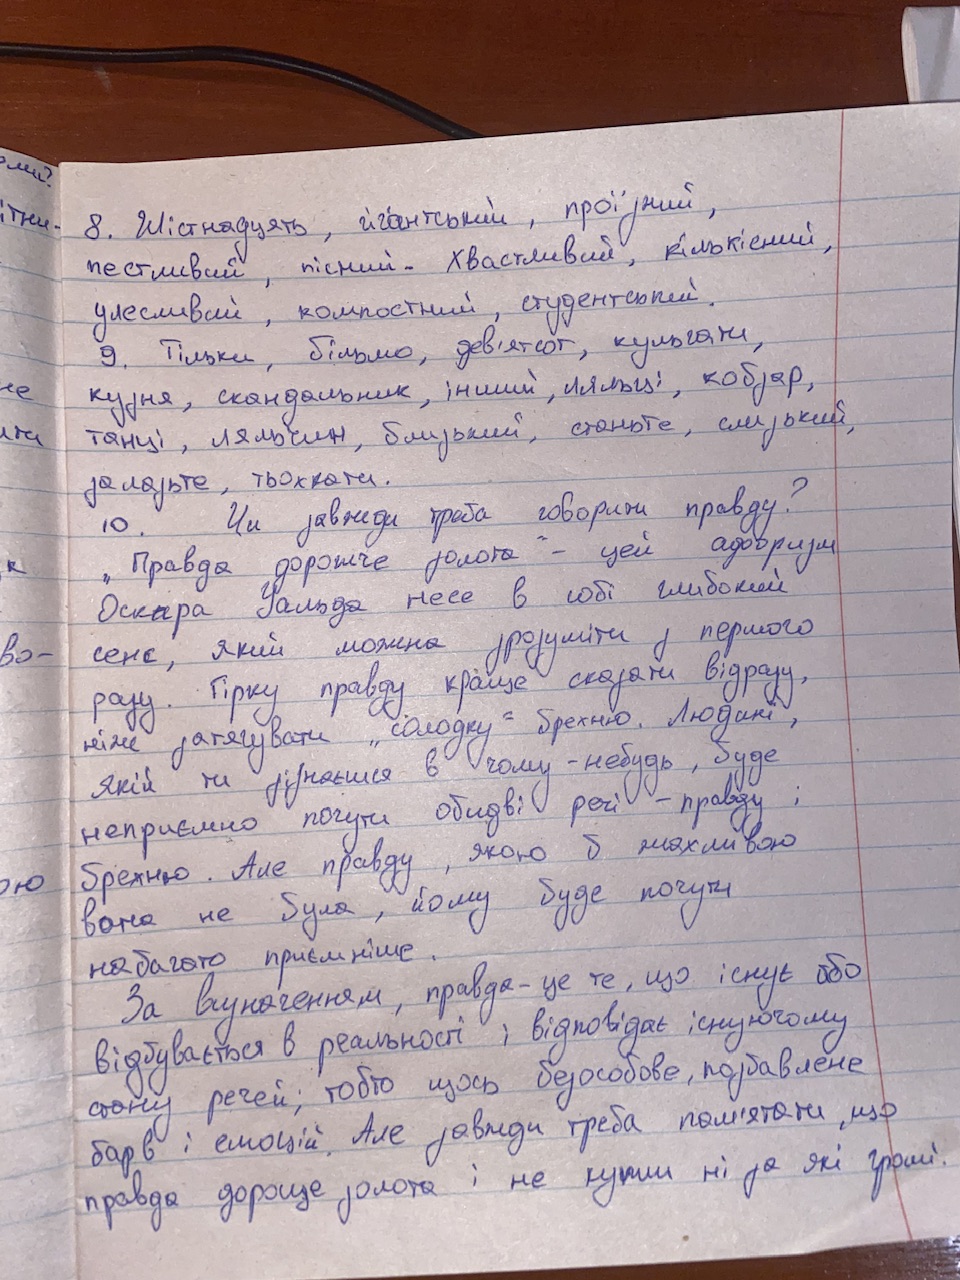 8. Шістнадцять, гігантський, проїзний,
пестливий, пісний. Хвастливий, кількісний,
улесливий, компостний, студентський.
9. Тільки, більмо, дев'ятсот, кульгати,
кузня, скандальник, інший, ляльці, кобзар,
танці, ляльчин, близький, станьте, слизький,
залазьте, тьохкати.
10. Чи завжди треба говорити правду?
„Правда дорожче золота“ – цей афоризм
Оскара Уальда несе в собі глибокий
сенс, який можна зрозуміти з першого
разу. Гірку правду краще сказати відразу,
ніж затягувати „солодку“ брехню. Людині,
якій ти зізнаєшся в чому-небудь, буде
неприємно почути обидві речі – правду і
брехню. Але правду, якою б жахливою
вона не була, йому буде почути
набагато приємніше.
За визначенням, правда – це те, що існує або
відбувається в реальності і відповідає існуючому
стану речей; тобто щось безособове, позбавлене
барв і емоцій. Але завжди треба пам'ятати, що
правда дороще золота і не купиш ні за які гроші.